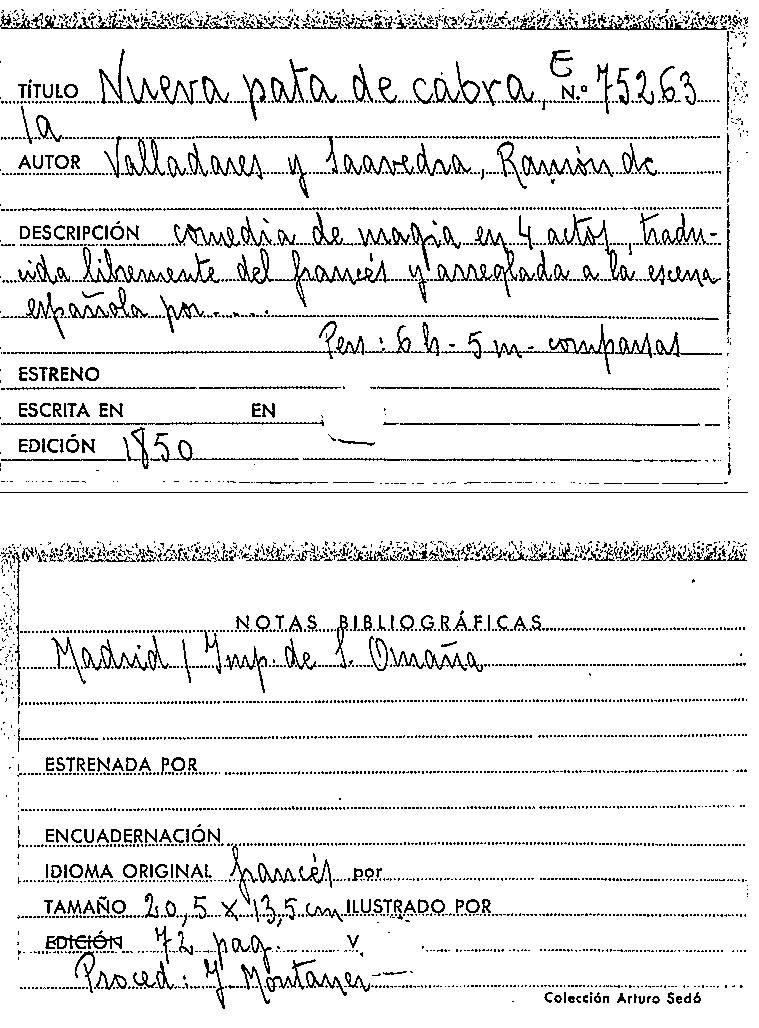 TÍTULO Nueva pata de cabra, E N.º 75263
la
AUTOR Valladares y Saavedra, Ramón de
DESCRIPCIÓN comedia de magia en 4 actos, tradu-
cida libremente del francés y arreglada a la escena
española por....
Pers: 6 h - 5 m - comparsas
ESTRENO
ESCRITA EN EN
EDICIÓN 1850
NOTAS BIBLIOGRÁFICAS
Madrid / Imp. de S. Omaña
ESTRENADA POR
ENCUADERNACIÓN
IDIOMA ORIGINAL francés por
TAMAÑO 20,5 x 13,5 cm ILUSTRADO POR
EDICIÓN 72 pag. V.
Proced: Montaner
Colección Arturo Sedó